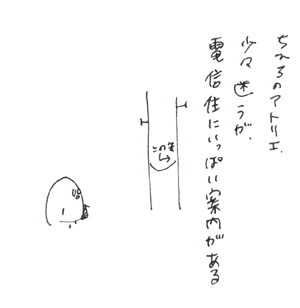 ちひろのアトリエ、
少々迷うが、
電信柱にいっぱい案内がある
この先